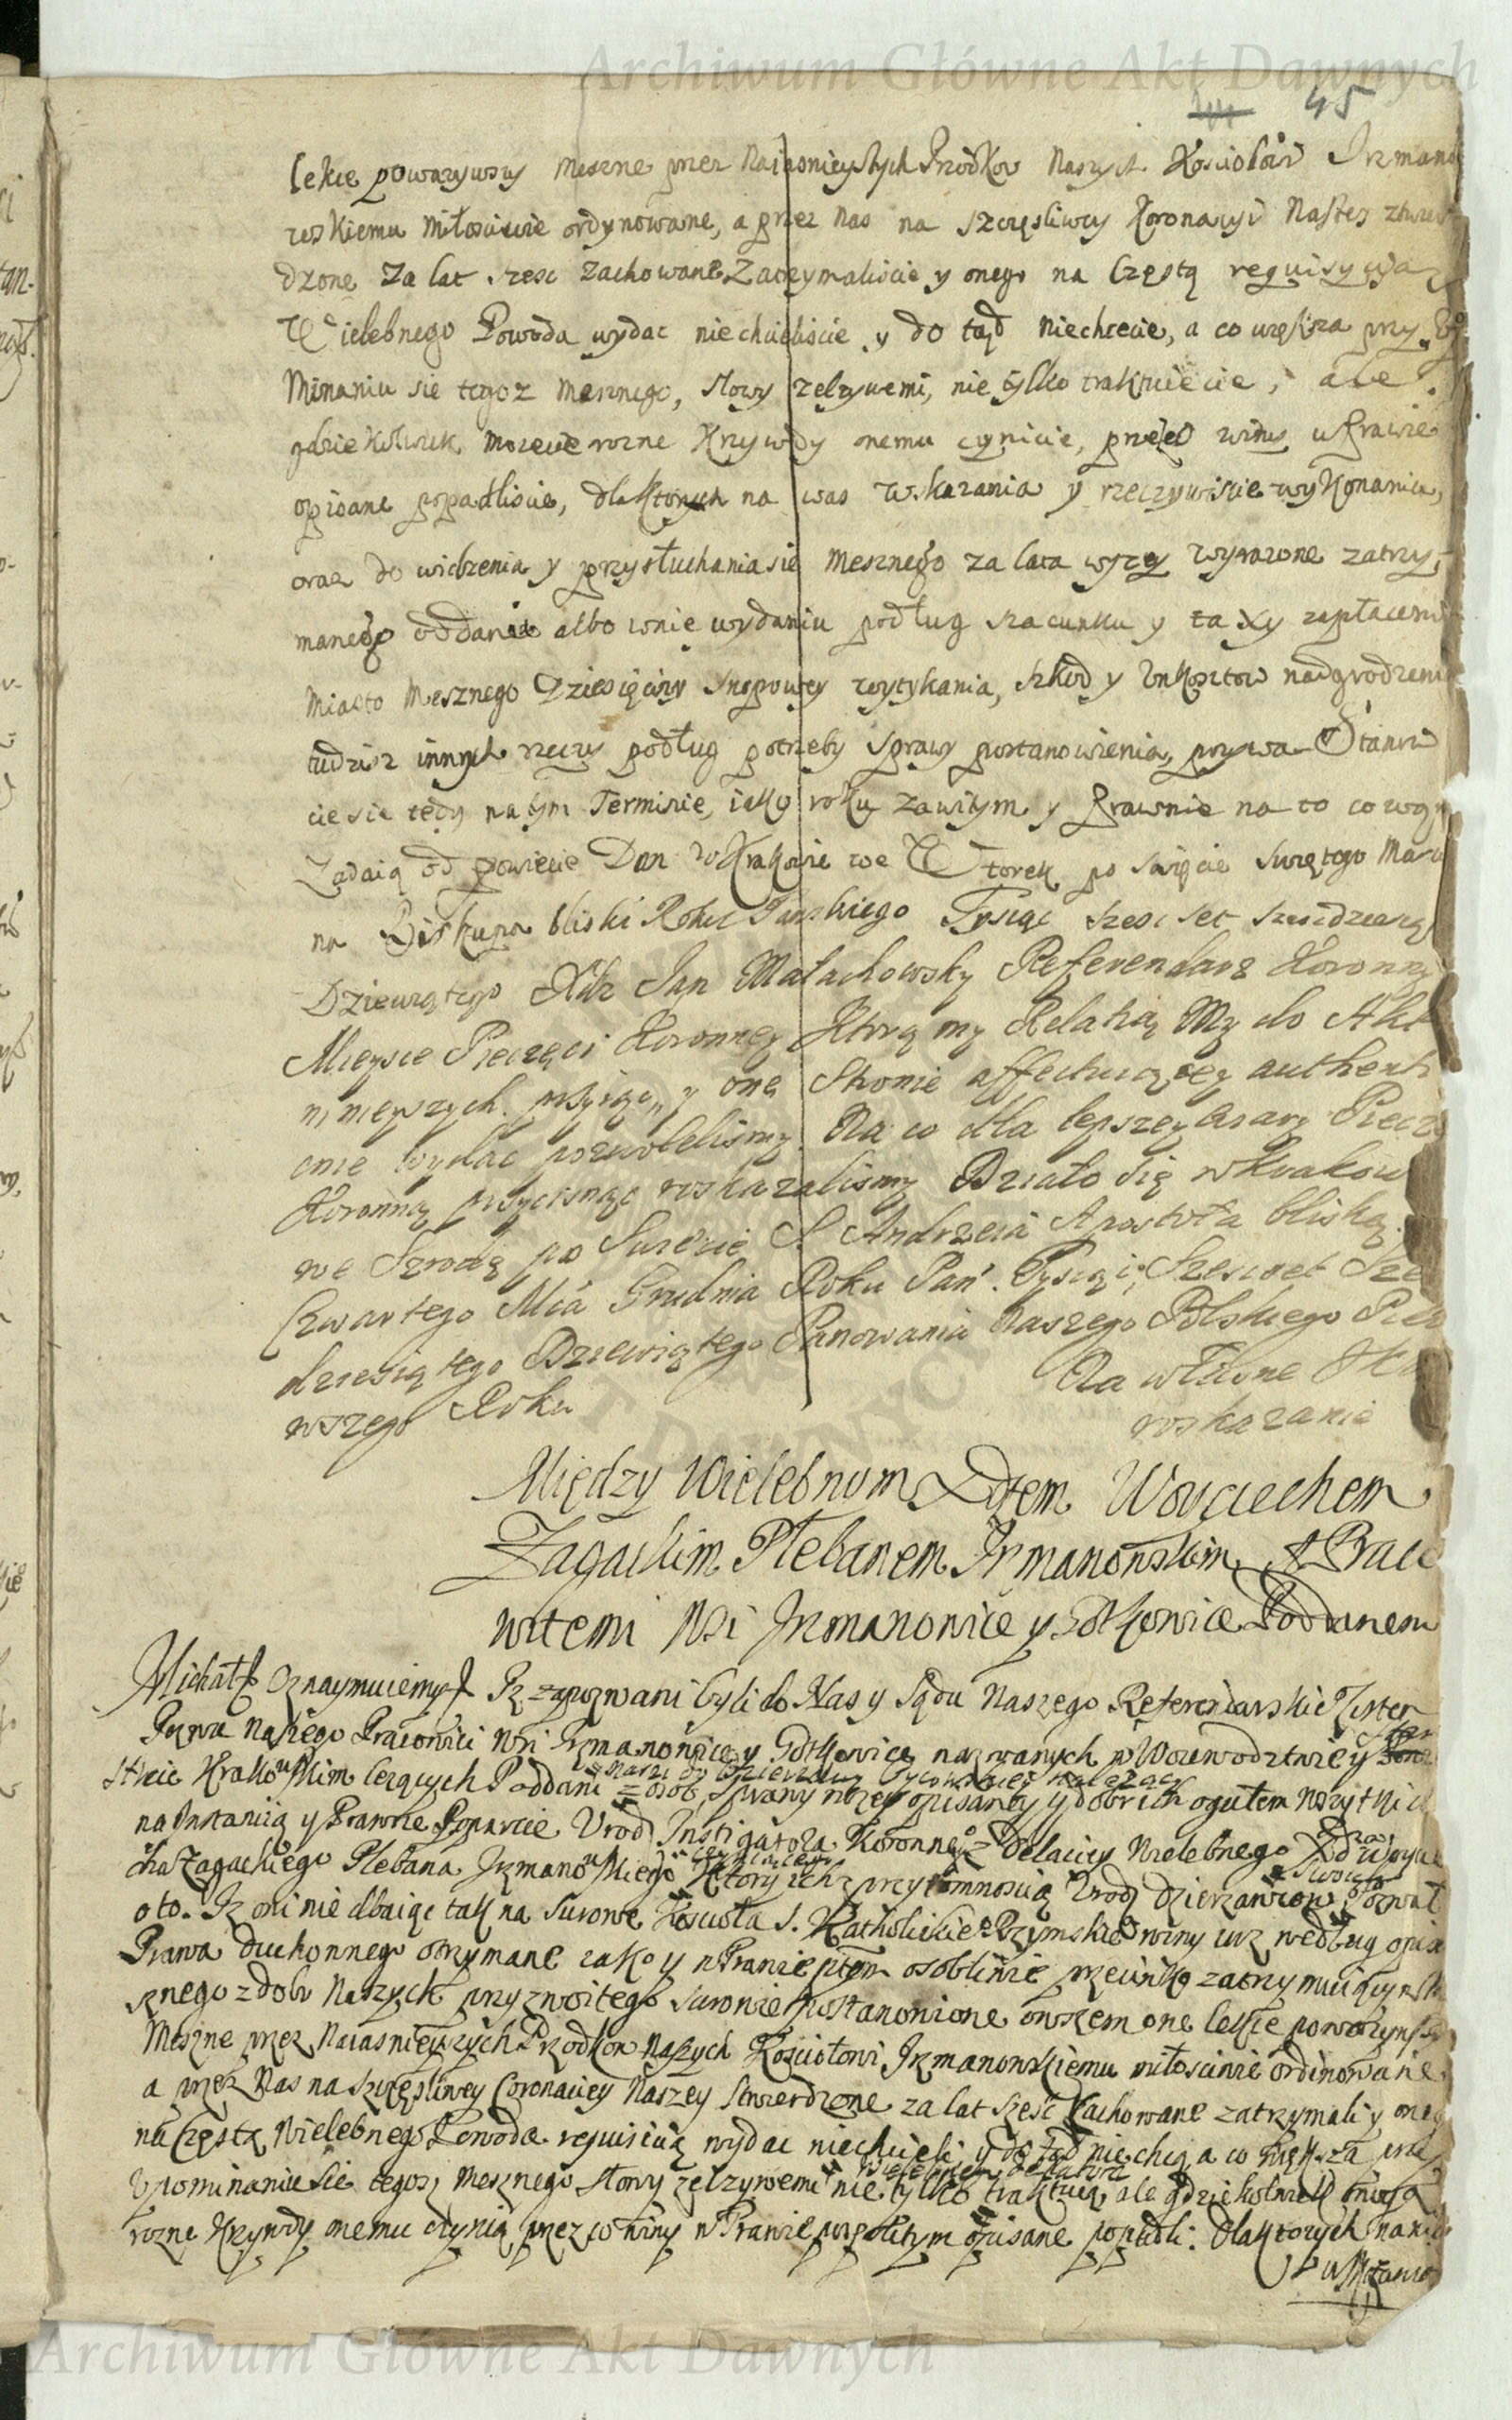 Archiwum Główne Akt Dawnych
45
lekce poważywszy meszne przez Naiasnieyszych Przodkow Naszych Kosciołowi Irzmano
wskiemu miłościwie ordynowane, a przez nas na szczęsliwey Koronacyi Naszey ztwier
dzone za lat szesc zachowane Zatrzymaliscie y onego na częstą requisycyą
Wielebnego Powoda wydac niechcieliscie y do tąd niechcecie, a co większa przy
Minaniu sie tegoz mesznego, słowy zelzywemi, nie tylko traktuiecie, ale
gdziekolwiek mozecie rozne krzywdy onemu czynicie, przez co winy w Prawie
opisane popadliscie, dla ktorych na was wskazania y rzeczywiscie wykonania,
oraz do widzenia y przysłuchania sie mesznego za lata wyzey wyrazone zatrzy-
manego oddania albo w nie wydaniu podług szacunku y taxy zapłaceni
miasto Mesznego Dziesięciny snopowey wytykania, szkod y Unkosztow nadgrodzeni
tudziez innych rzeczy podług potrzeby sprawy postanowienia, pozywa Stanie
cie sie tedy na tym Terminie, iako roku zawitym y Prawnie na to co wa
Zadaią odpowiecie Dan w Krakowie we Wtorek po Swięcie Swiętego Marci
na Biskupa bliski Roku Panskiego Tysiąc szesc set szescdziesią
Dziewiątego Xdz Jan Małachowsky Referendarz Koronny
Mieysce Pieczęci Koronney Ktorą my Relatią Mę do Akt
ninieyszych przyięc, y onę Stronie affectuiącey authenti
cnie wydac pozwolelismy. Na co dla lepszey wiary Piecz
Koronną przycisnąc roskazalismy Działo się w Krakow
we Srzodę po Swięcie S. Andrzeia Apostoła bliską
Czwartego Mca Grudnia Roku Pań. Tysiąc Szescset Sze
dziesiątego Dziewiątego Panowania Naszego Polskiego Pier
wszego Roku
Na własne
roskazanie
Między Wielebnym Xdzem Woyciechem
Zagackim Plebanem Irzmanowskim A Praco
witemi Wsi Irzmanowice y Gotkowice Poddanem
Michał Oznaymuiemy Iz zapozwani byli do Nas y Sądu Naszego Referendarskie
Pozwu Naszego Pracowici Wsi Irzmanowice y Gotkowice nazwanych w Woiewodztwie y
stwie Krakowskim lezących Poddani z osob, sprawy nizey opisaney y dobr ich ogułem wszytkich
na Instantią y Prawne Poparcie Urod Instigatora Koronnego z Delaciey Wielebnego Xdza Woycie
cha Zagackiego Plebana Irzmanowskiego Ktory ich z przytomnoscią Urodz Dzierzawcow Pozwał
o to. Iz oni nie dbaiąc tak na surowe Kościoła S. Katholickie Rzymskie winy iuz według opisa
Prawa duchownego otrzymane iako y w Prawie pisem osobliwie przeciwko zatrzymuiącym
sznego z dobr Naszych przyzwoitego surowie postanowione owszem one lekce powazywszy
Meszne przez Naiasnieyszych Przodkow Naszych Kosciołowi Irzmanowskiemu miłosciwie ordinowane
a przez Nas na szczęśliwey Coronaciey Naszey stwierdzone za lat szesc zachowane zatrzymali y oneg
na Częstą Wielebnego Powoda requisitią wydac niechcieli y do tąd niechcą a co większa przy
Upominaniu sie tegosz mesznego słowy zelzywemi nie tylko traktuią, ale gdziekolwiek mogą
rozne krzywdy onemu czynią przez co winy w Prawie pospolitym opisane popadli. Dla ktorych na nich
wskazania
Archiwum Główne Akt Dawnych